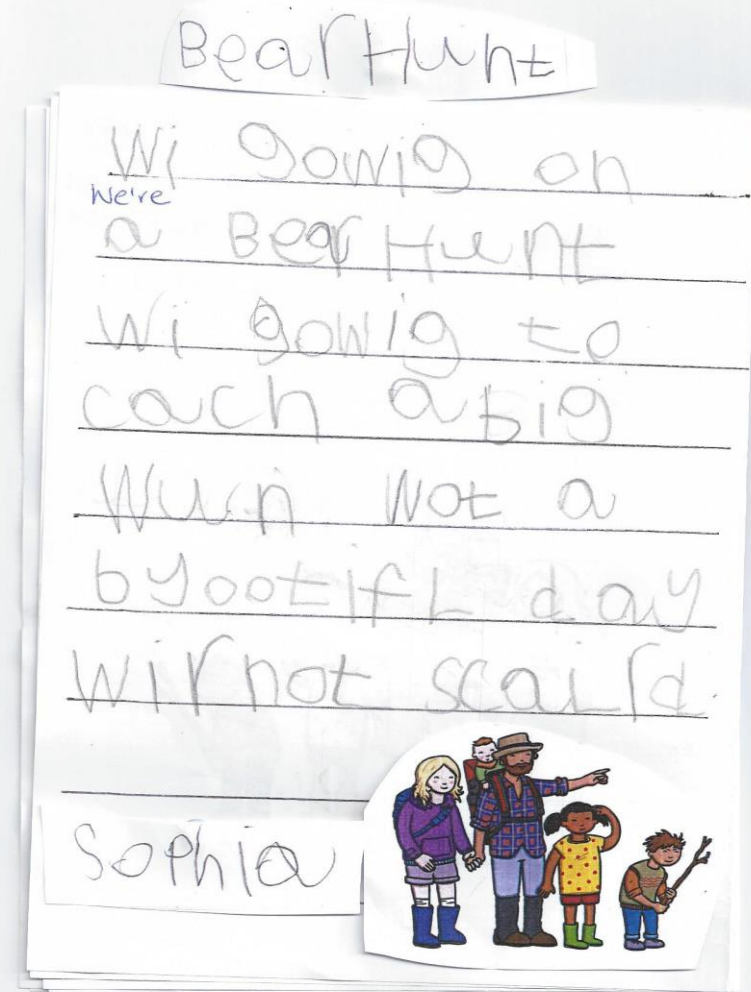 Bear Hunt
Wi gowig on
We're
a Bear Hunt
Wi gowig to
cach a big
Wun Wot a
byootifl day
Wir not scaird
Sophia